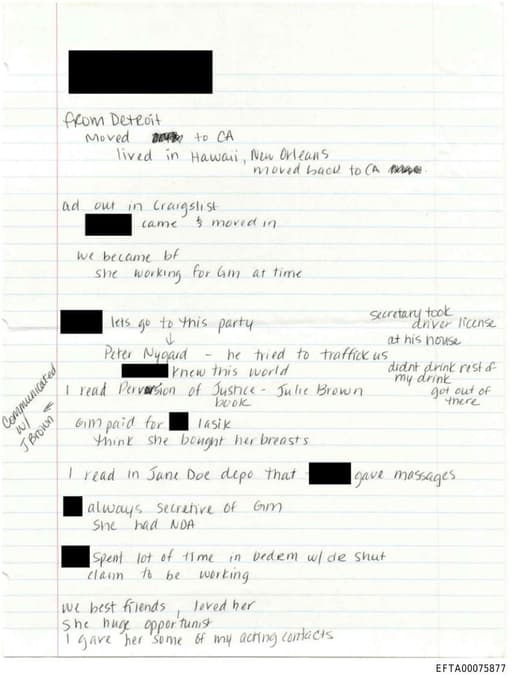 from Detroit
moved to CA
lived in Hawaii, New Orleans
moved back to CA
ad out in Craigslist
came & moved in
we became bf
she working for Gm at time
lets go to this party
secretary took
driver license
at his house
↓
Peter Nygard - he tried to traffick us
knew this world
didnt drink rest of
my drink
got out of
there
I read Perversion of Justice - Julie Brown
book
Communicated
w/
J Brown
Gm paid for lasik
think she bought her breasts
I read in Jane Doe depo that gave massages
always secretive of Gm
she had NDA
spent lot of time in bedrm w/ shut
claim to be working
we best friends, loved her
she huge opportunist
I gave her some of my acting contacts
EFTA00075877